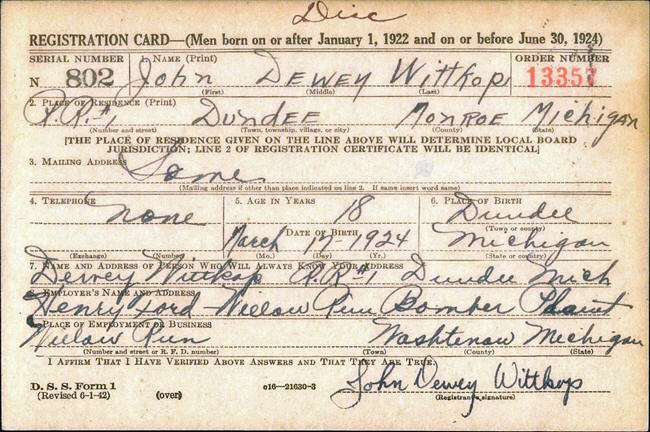 Disc
REGISTRATION CARD—(Men born on or after January 1, 1922 and on or before June 30, 1924)
SERIAL NUMBER 1. NAME (Print) ORDER NUMBER
N 802 John Dewey Wittkop 13357
(First) (Middle) (Last)
2. PLACE OF RESIDENCE (Print)
R.R.#1 Dundee Monroe Michigan
(Number and street) (Town, township, village, or city) (County) (State)
[THE PLACE OF RESIDENCE GIVEN ON THE LINE ABOVE WILL DETERMINE LOCAL BOARD
JURISDICTION; LINE 2 OF REGISTRATION CERTIFICATE WILL BE IDENTICAL]
3. MAILING ADDRESS
Same
(Mailing address if other than place indicated on line 2. If same insert word same)
4. TELEPHONE 5. AGE IN YEARS 6. PLACE OF BIRTH
none 18 Dundee
DATE OF BIRTH (Town or county)
March 17-1924 Michigan
(Exchange) (Number) (Mo.) (Day) (Yr.) (State or country)
7. NAME AND ADDRESS OF PERSON WHO WILL ALWAYS KNOW YOUR ADDRESS
Dewey Wittkop R.R.#1 Dundee Mich
EMPLOYER'S NAME AND ADDRESS
Henry Ford Willow Run Bomber Plant
PLACE OF EMPLOYMENT OR BUSINESS
Willow Run Washtenaw Michigan
(Number and street or R. F. D. number) (Town) (County) (State)
I AFFIRM THAT I HAVE VERIFIED ABOVE ANSWERS AND THAT THEY ARE TRUE.
John Dewey Wittkop
D. S. S. Form 1 c16—21630-3 (Registrant's signature)
(Revised 6-1-42) (over)